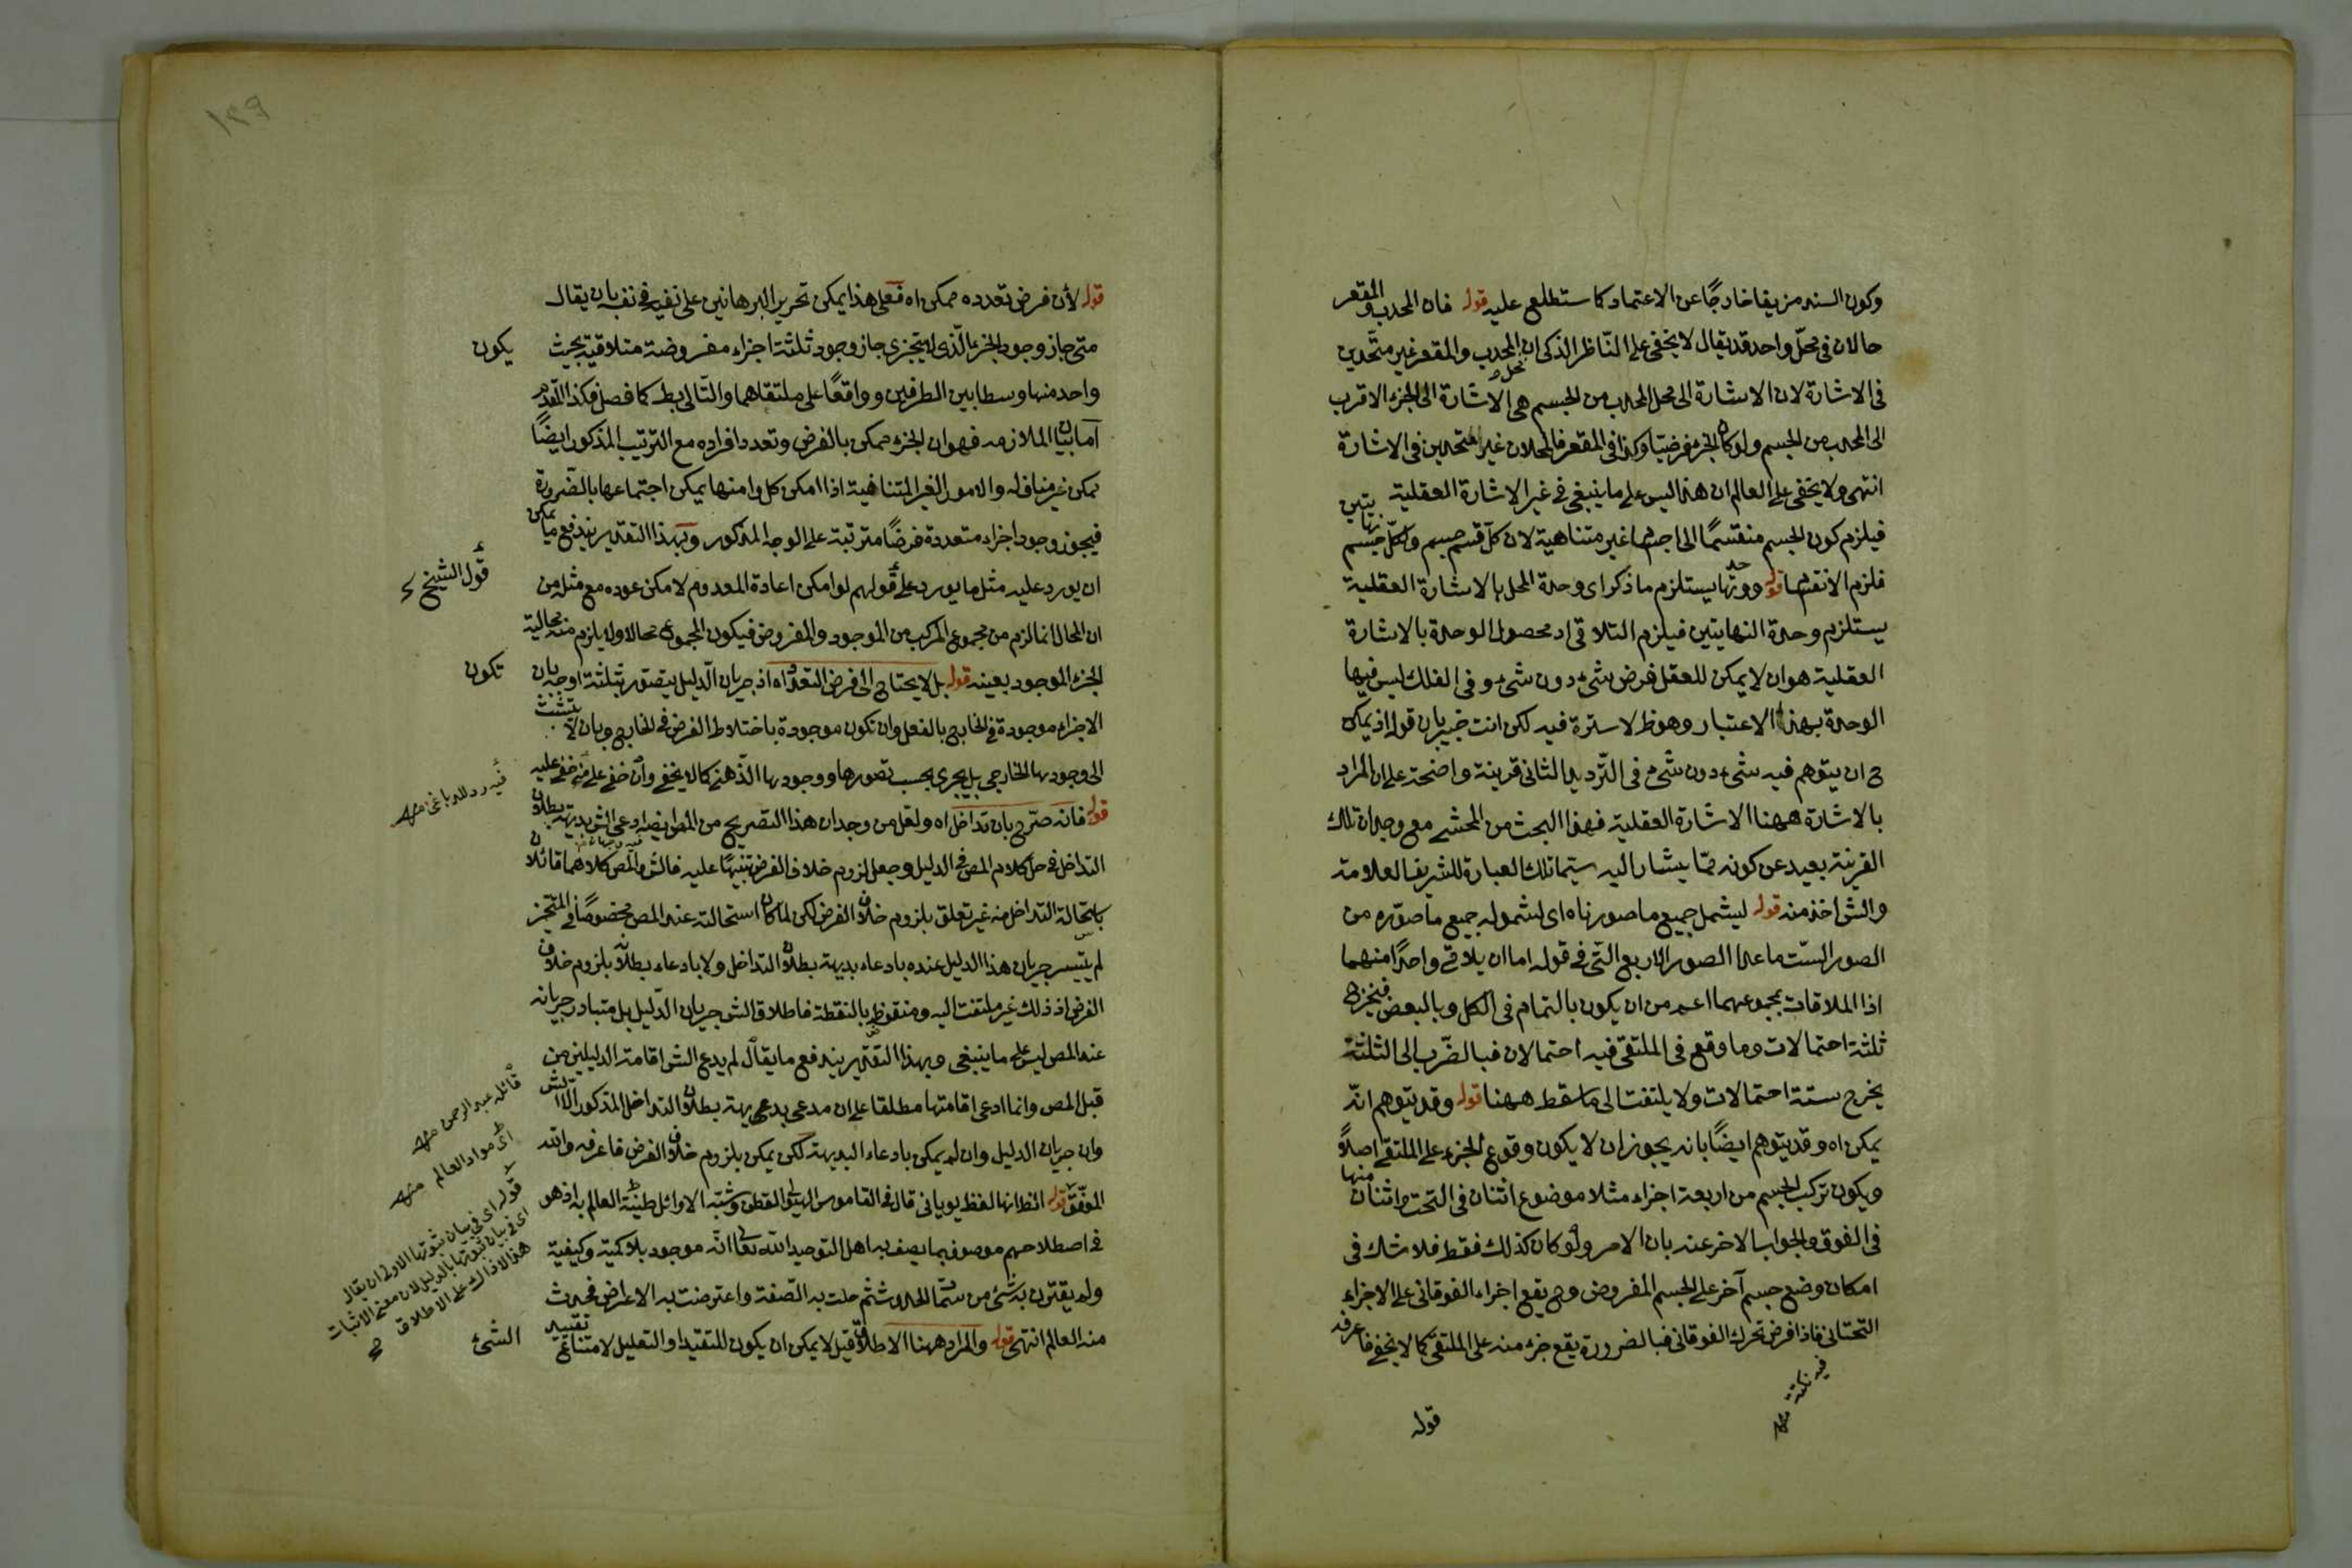 وكون السند مزيفا خارجًا عن الاعتماد كما ستطلع عليه قوله فان المحدب والمقعر
حالان فى محلّ واحد قد يقال لا يخفى على النّاظر الذكى ان المحدب والمقعر غير متّحدين
فى الاشارة لان الاشارة الى محل المحدب من الجسم هى الاشارة الى الجزء الاقرب
الى المحدب من الجسم ولو كان الجزء فرضيّا وكذا فى المقعر فالمحلان غير متحدين فى الاشارة
انتهى ولا يخفى على العالم ان هذا ليس على ما ينبغى فى غير الاشارة العقلية
فيلزم كون الجسم منقسمًا الى اجسام غير متناهية لان كلّ قسم جسم ولكلّ جسم نهايتين
فلزم الانقسام قوله ووحدتها يستلزم ما ذكر اى وحدة المحل بالاشارة العقلية
يستلزم وحدة النهايتين فيلزم التلاقى اد محصول الوحدة بالاشارة
العقلية هو ان لا يمكن للعقل فرض شىء دون شىء وفى الفلك ليس فيها
الوحدة بهذا الاعتبار وهو ظ لا سترة فيه لكن انت خبير بان قوله اذ يمكن
ح ان يتوهم فيه شىء دون شىء فى التّرديد الثانى قرينة واضحة على ان المراد
بالاشارة ههنا الاشارة العقلية فهذا البحث من المحشى مع وجدان تلك
القرينة بعيد عن كونه ممّا يشار اليه سيّما تلك العبارة للشريف العلامة
والش اخذ منه قوله ليشمل جميع ما صورناه اى لشموله جميع ما صوّره من
الصور السّت ما عدا الصور الاربع التى فى قوله اما ان يلاقى واحدًا منهما
اذا الملاقات بمجموعهما اعم من ان يكون بالتمام فى الكل وبالبعض فيخرج
ثلثة احتمالات وما وقع فى الملتقى فيه احتمالان فبالضّرب الى الثلثة
يخرج ستة احتمالات ولا يلتفت الى ما سقط ههنا قوله وقد يتوهم انّه
يمكن اه وقد يتوهم ايضًا بانه يجوز ان لا يكون وقوع الجزء على الملتقى اصلاً
ويكون تركب الجسم من اربعة اجزاء مثلا موضوع اثنان منها فى التحت واثنان
فى الفوق والجواب الاخر عنه بان الامر ولو كان كذلك فقط فلا شك فى
امكان وضع جسم آخر على الجسم المفروض وح يقع اجزاء الفوقانى على الاجزاء
التحتانى فاذا فرض تحرك الفوقانى فبالضرورة يقع جزء منه على الملتقى كما لا يخفى فاعرفه
فيه نكتة منه
قوله
١٣٩
قوله لأن فرض تعدده ممكن اه فعلى هذا يمكن تحرير البرهانين على نفيه فى نفسه بان يقال
متى جاز وجود الجزء الّذى لا يتجزى جاز وجود ثلثة اجزاء مفروضة متلاقية بحيث يكون
واحد منها وسطا بين الطرفين وواقعًا على ملتقاهما والتّالى بط كما فصل فكذا المقدم
اما بيان الملازمه فهو ان الجزء ممكن بالفرض وتعدد افراده مع الترتيب المذكور ايضًا
يمكن غير مناف له والامور الغير المتناهية اذا امكن كل وامنها يمكن اجتماعها بالضّرورة
فيجوز وجود اجزاء متعددة فرضًا مترتبة على الوجه المذكور وبهذا التقدير يندفع ما يمكن
ان يورد عليه مثل ما يورد على قولهم لو امكن اعادة المعدوم لامكن عوده مع مثله من
قول الشيخ
ان المحال انما لزم من مجموع المركب من الموجود والمفروض فيكون المجموع محالا ولا يلزم منه محالية
الجزء الموجود بعينه قوله بل لا يحتاج الى فرض التعدّد اه اذ جريان الدّليل يتصور بثلثة اوجه بان تكون
الاجزاء موجودة فى الخارج بالفعل وان تكون موجودة باختلاط الفرض فى الخارج وبان لا يتشبث
الى وجودها الخارجى بل يجرى بحسب تصورها ووجودها الذّهنى كما لا يخفى وان خفى على من خفى عليه
فيه رد للدباغى منه
قوله فانه صرّح بان تداخل اه ولعل من وجدان هذا التصريح من المص ايضا ادعى الش بديهة بطلان
التداخل فى حل كلام المص فى الدليل وجعل لزوم خلاف الفرض تنبيهًا عليه فالش والمص كلاهما قائلان
باستحالة التداخل من غير تعلق بلزوم خلاف الفرض لكن لما كان استحالته عند المص مخصوصًا فى المتحيز
لم يتيسر جريان هذا الدليل عنده بادعاء بديهة بطلان التداخل ولا بادعاء بطلانه بلزوم خلاف
الفرض اذ ذلك غير ملتفت اليه ومنقوض بالنقطة فاطلاق الش جريان الدّليل بل متبادر جريانه
عند المص ليس على ما ينبغى وبهذا التقدير يندفع ما يقال لم يدع الش اقامة الدليلين من
قائله عبد الرحمن منه
قبل المص وانما ادعى اقامتها مطلقا على ان مدعى بديهة بطلان التداخل المذكور الش
وان جريان الدليل وان لم يمكن بادعاء البديهة لكن يمكن بلزوم خلاف الفرض فاعرفه والله
الموفّق قوله انظ انها لفظ يويانى قال فى القاموس الهيولى القطن وشبّه الاوائل طينة العالم به اذ هو
اى مواد العالم منه
فى اصطلاحهم موصوف بما يصف به اهل التوحيد الله تعا انّه موجود بلا كمّية وكيفية
ولم يقترن به شىء من سمات الحدث ثم حلت به الصّفة واعترضت به الاعراض فحدث
منه العالم انتهى قوله والمراد ههنا الاطلاق قيل لا يمكن ان يكون للتقييد او التعليل لامتناع تقييد الشىء
قوله اى فى بيان ثبوتها الاولى ان يقال
اى فى بيان ثبوتها بالدليل لان معنى الاثبات
هذا لا ذاك على الاطلاق